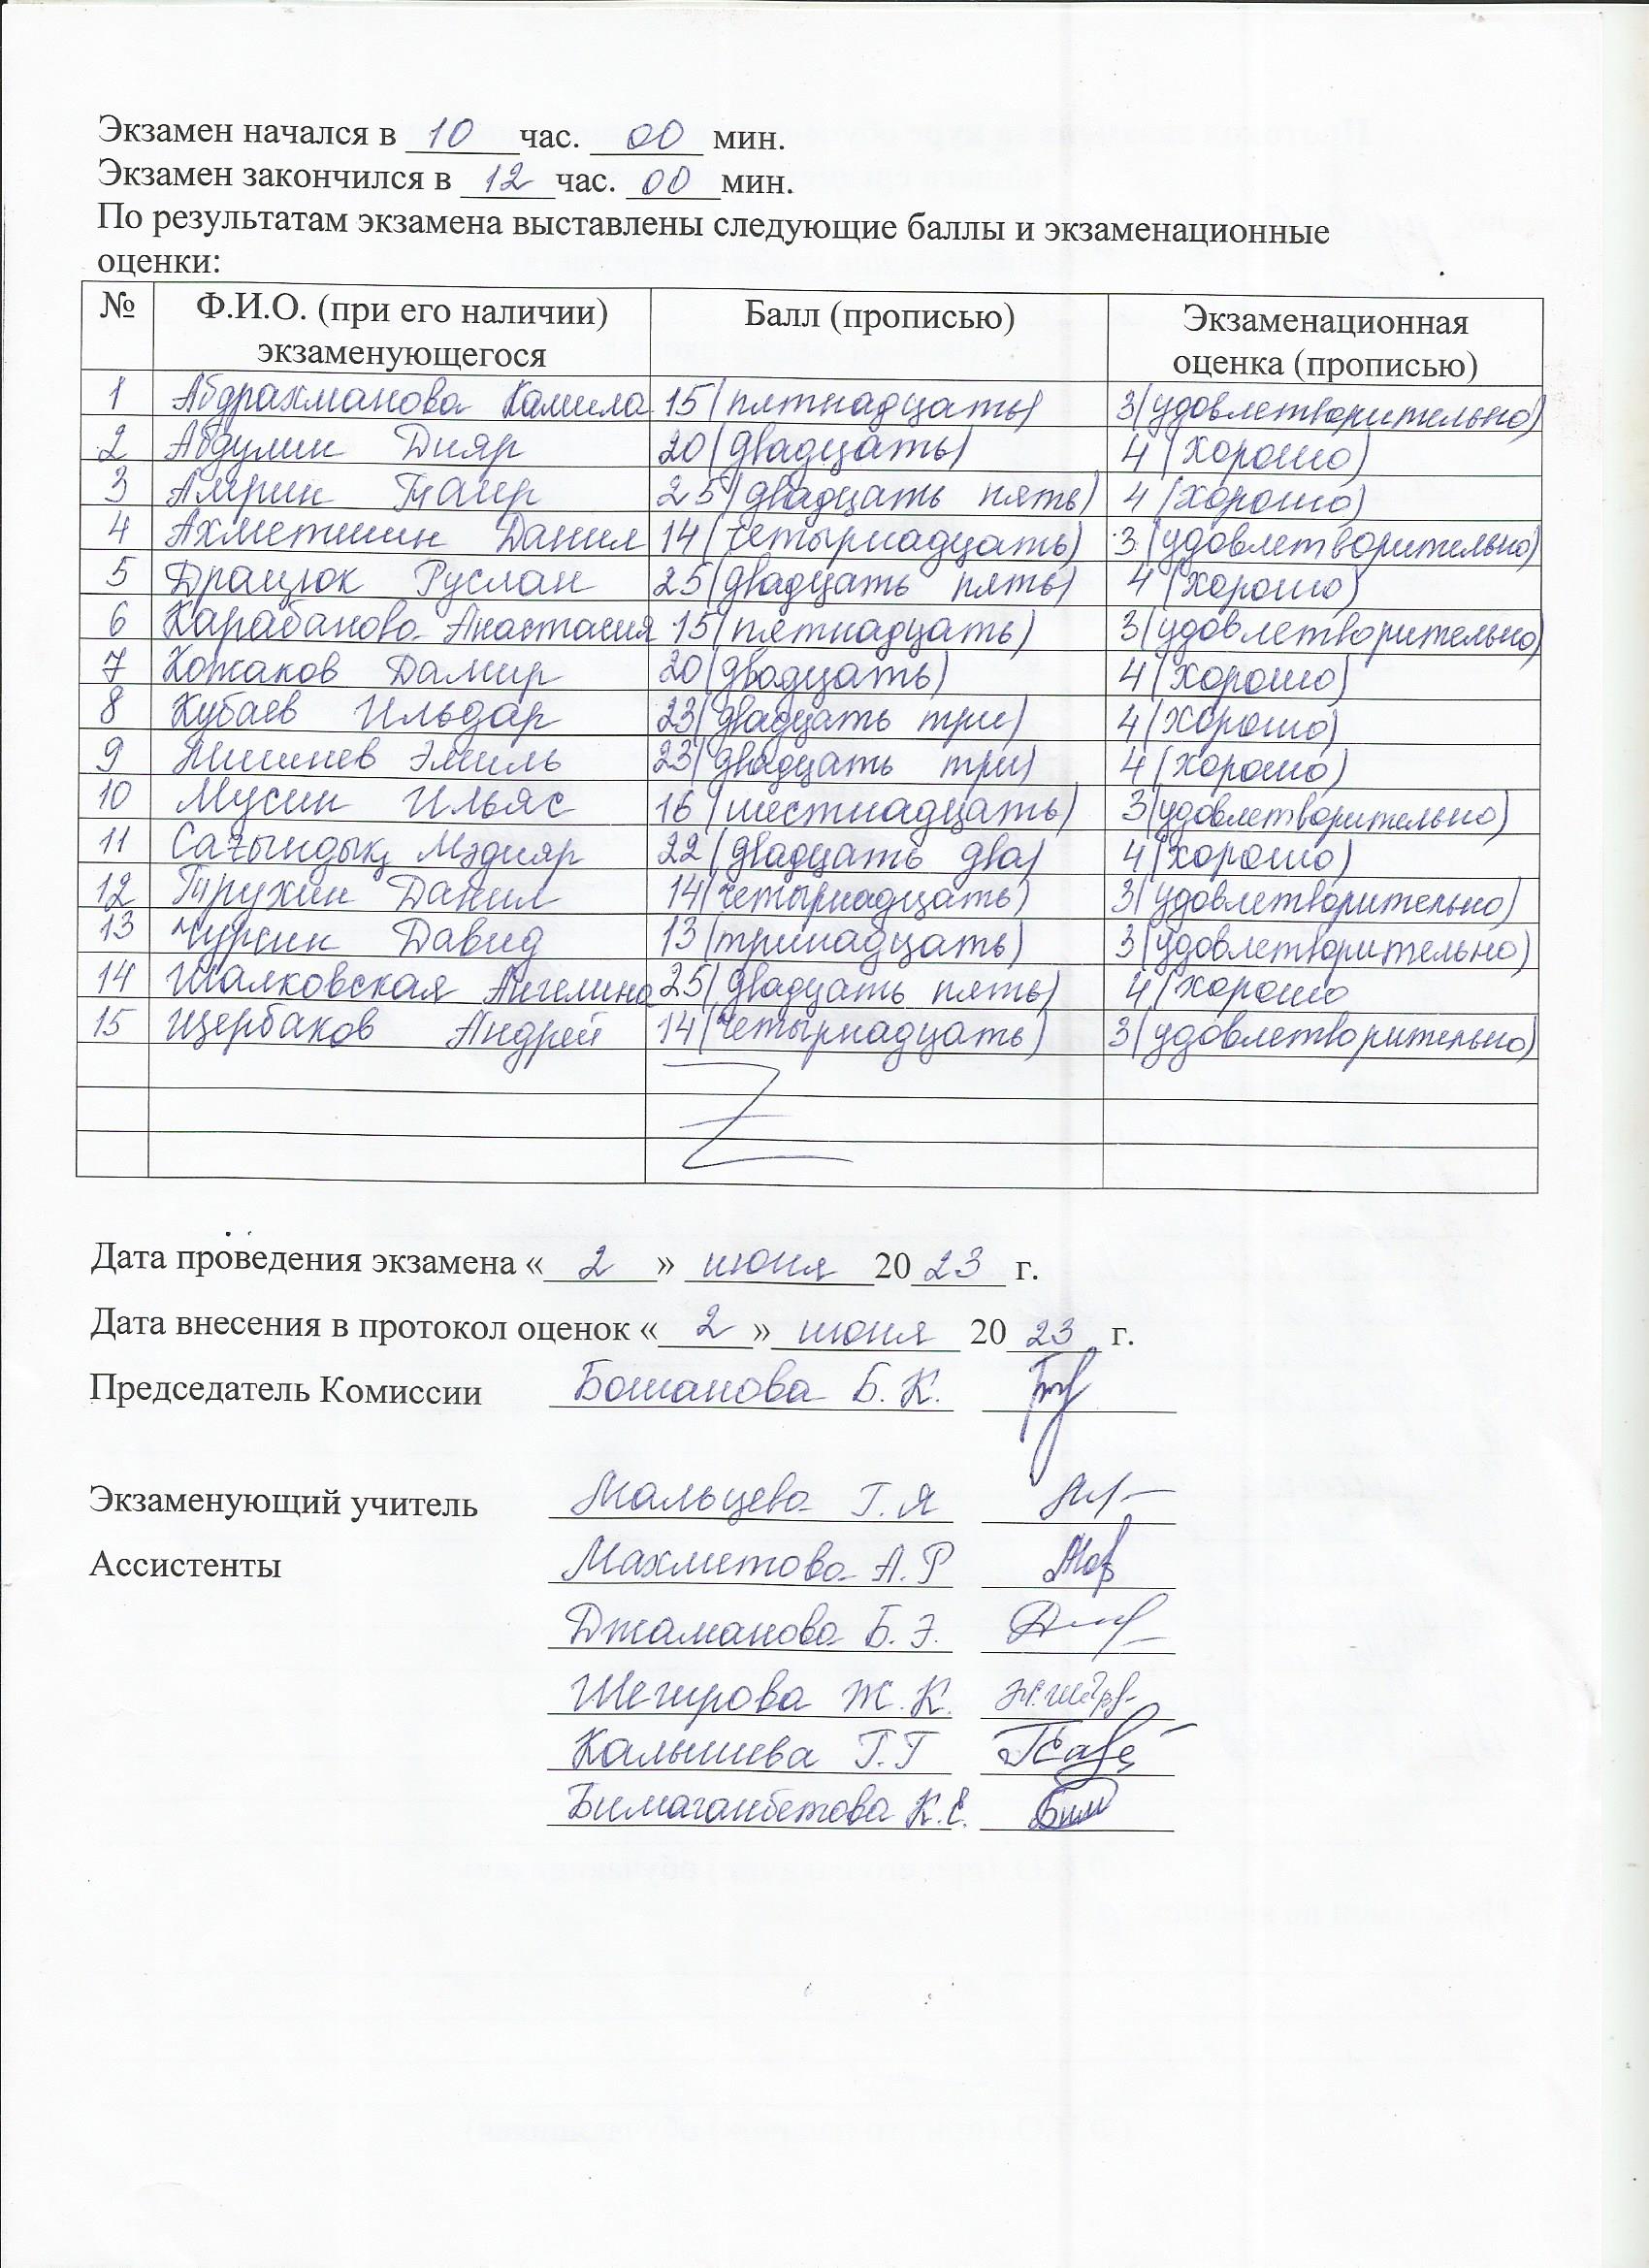 Экзамен начался в 10 час. 00 мин.
Экзамен закончился в 12 час. 00 мин.
По результатам экзамена выставлены следующие баллы и экзаменационные
оценки:
№ Ф.И.О. (при его наличии) экзаменующегося Балл (прописью) Экзаменационная оценка (прописью)
1 Абдрахманова Камила 15 (пятнадцать) 3 (удовлетворительно)
2 Абдулин Дияр 20 (двадцать) 4 (хорошо)
3 Амрин Таир 25 (двадцать пять) 4 (хорошо)
4 Ахметшин Данил 14 (четырнадцать) 3 (удовлетворительно)
5 Драцюк Руслан 25 (двадцать пять) 4 (хорошо)
6 Карабанова Анастасия 15 (пятнадцать) 3 (удовлетворительно)
7 Кожаков Дамир 20 (двадцать) 4 (хорошо)
8 Кубаев Ильдар 23 (двадцать три) 4 (хорошо)
9 Мишнев Эмиль 23 (двадцать три) 4 (хорошо)
10 Мусин Ильяс 16 (шестнадцать) 3 (удовлетворительно)
11 Сағындық Мәдияр 22 (двадцать два) 4 (хорошо)
12 Трухин Данил 14 (четырнадцать) 3 (удовлетворительно)
13 Чурсин Давид 13 (тринадцать) 3 (удовлетворительно)
14 Шалковская Ангелина 25 (двадцать пять) 4 (хорошо
15 Щербаков Андрей 14 (четырнадцать) 3 (удовлетворительно)
Дата проведения экзамена «2» июня 2023 г.
Дата внесения в протокол оценок «2» июня 2023 г.
Председатель Комиссии Бошанова Б. К.
Экзаменующий учитель Мальцева Г. Я
Ассистенты Махметова А. Р
Джаманова Б. Э.
Шегирова Ж. К.
Калышева Г. Г
Бимаганбетова К. Е.